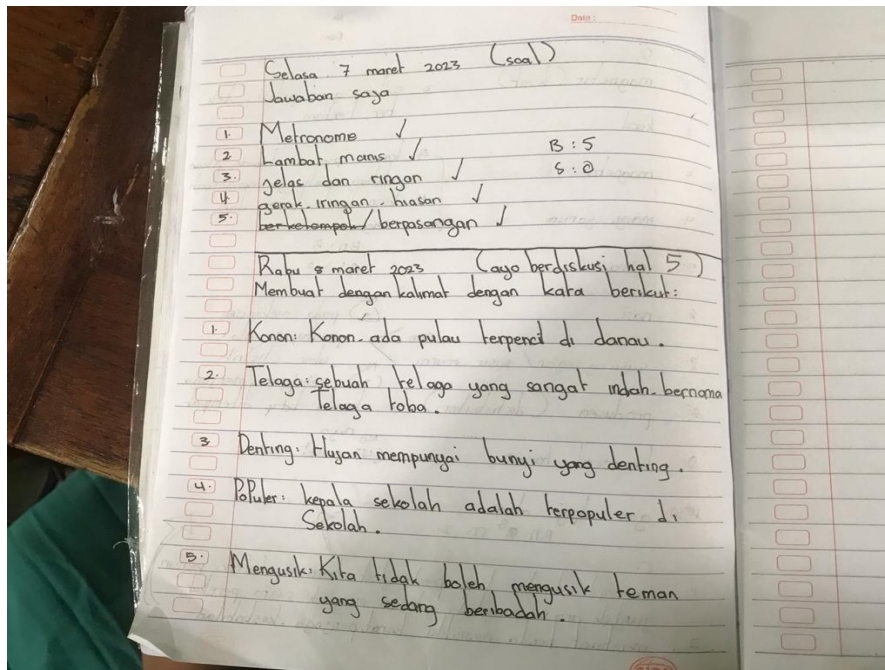 Date :
Selasa 7 maret 2023 (soal)
Jawaban saya
1. Metronome ✓
2. Lambat, mars ✓ B : 5
3. jelas dan ringan ✓ S : 0
4. gerak. iringan. hiasan ✓
5. berkelompok/ berpasangan ✓
Rabu 8 maret 2023 (ayo berdiskusi hal 5)
Membuat dengan kalimat dengan kata berikut:
1. Konon: Konon. ada pulau terpencil di danau.
2. Telaga: sebuah telaga yang sangat indah. bernama
Telaga toba.
3 Denting: Hujan mempunyai bunyi yang denting.
4. PoPuler: kepala sekolah adalah terpopuler di
Sekolah.
5. Mengusik: Kita tidak boleh mengusik teman
yang sedang beribadah.